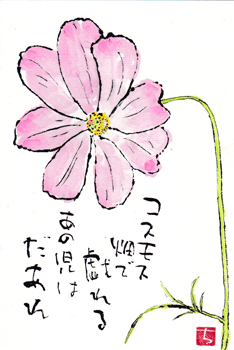 コスモス
畑で
戯れる
あの児は
だあれ
ち